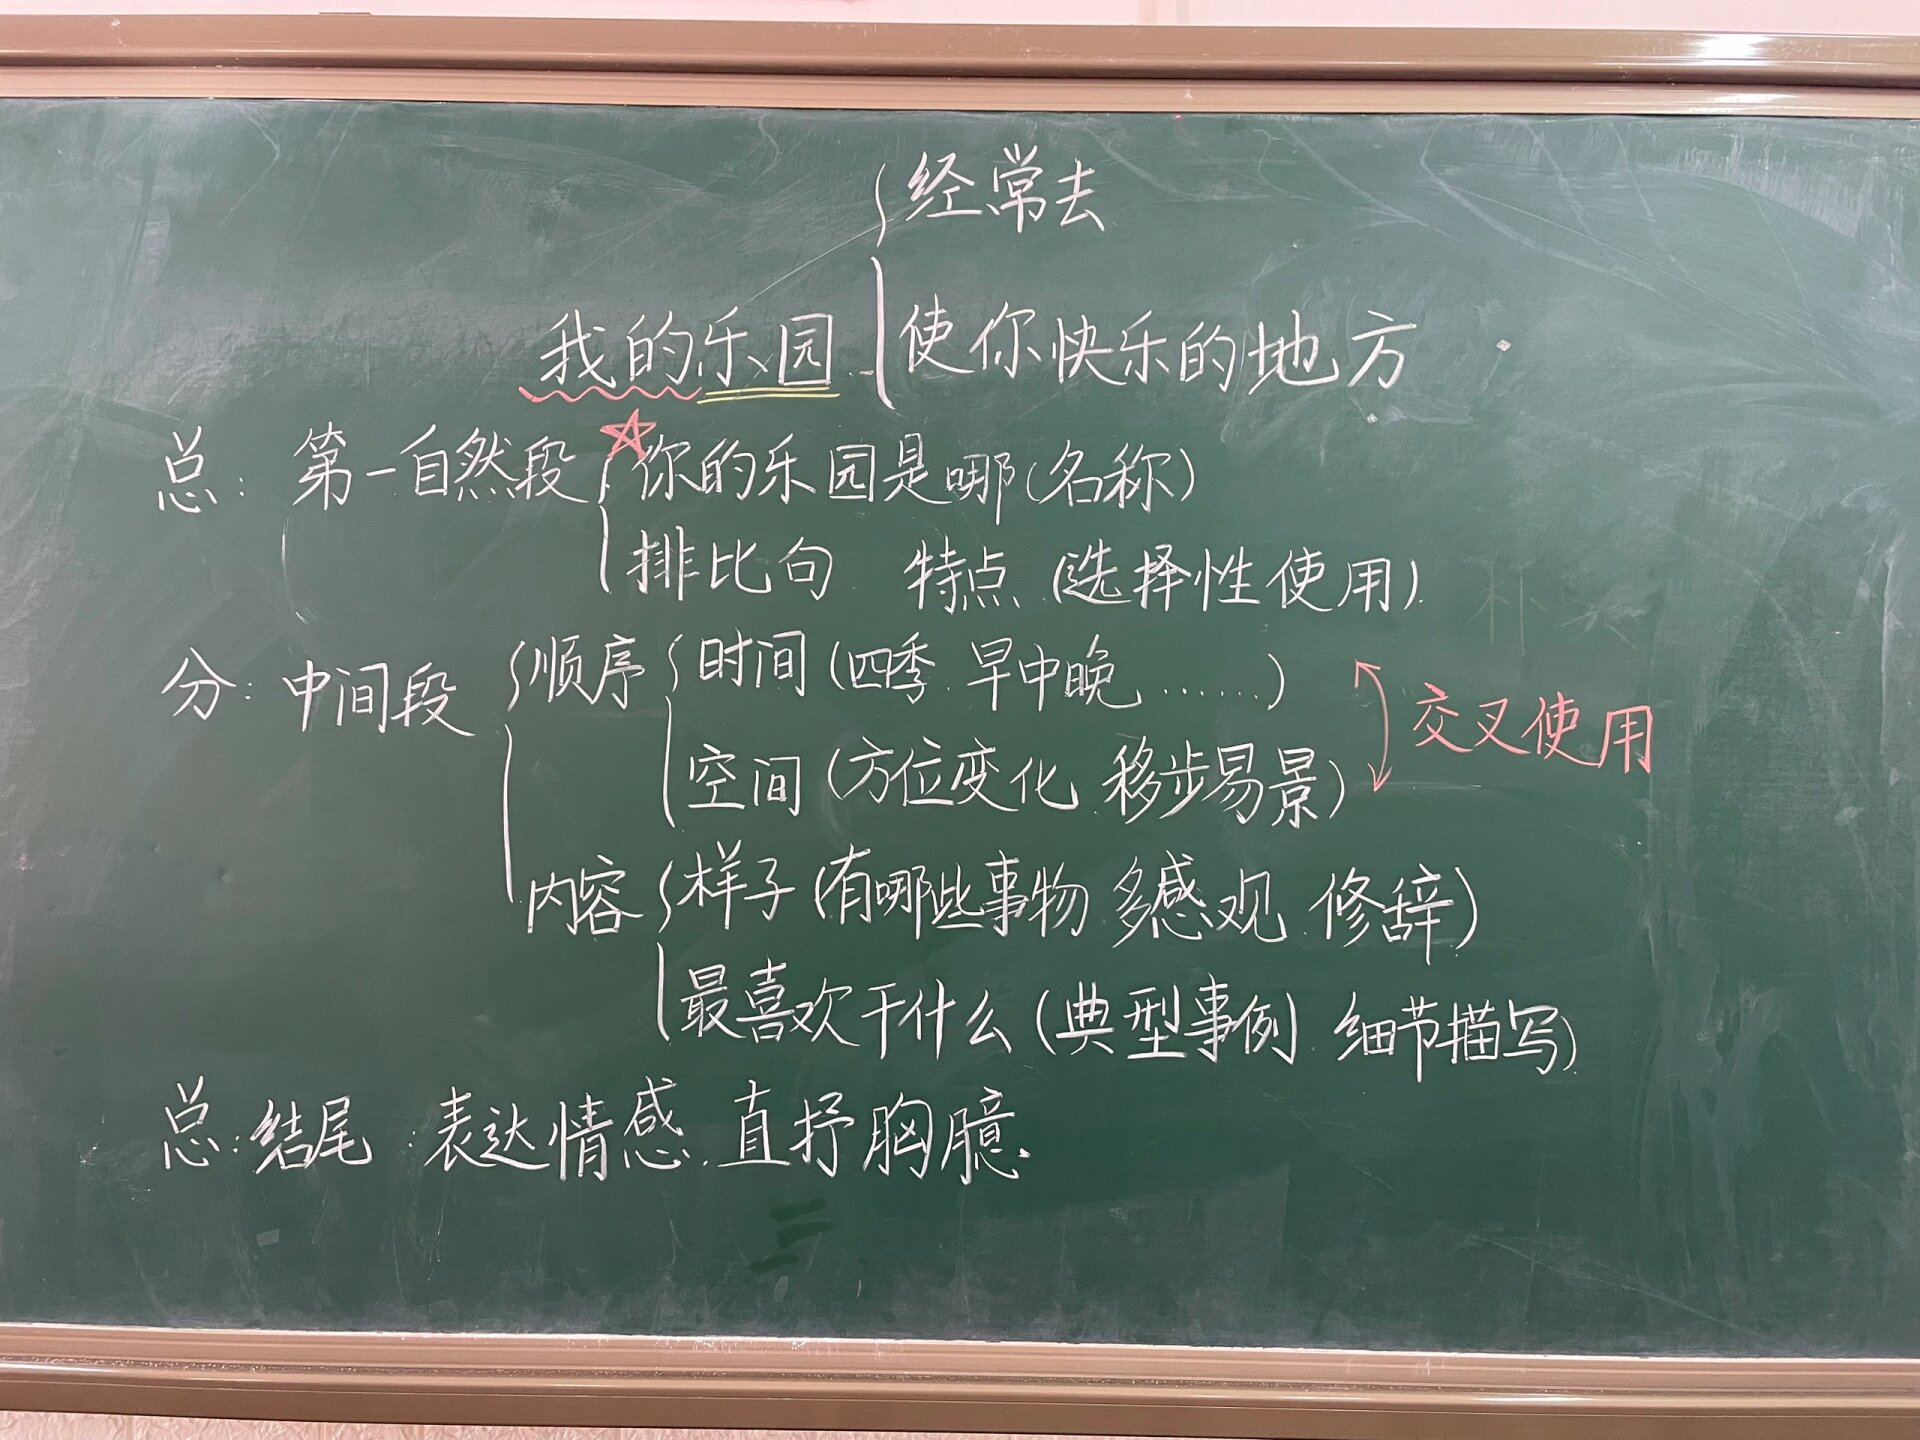 经常去
我的乐园 使你快乐的地方
总：第一自然段 你的乐园是哪（名称）
排比句 特点（选择性使用）.
分：中间段 顺序 时间（四季 早中晚……）
交叉使用
空间（方位变化 移步易景）
内容 样子（有哪些事物 多感观 修辞）
最喜欢干什么（典型事例 细节描写）
总：结尾：表达情感.直抒胸臆.